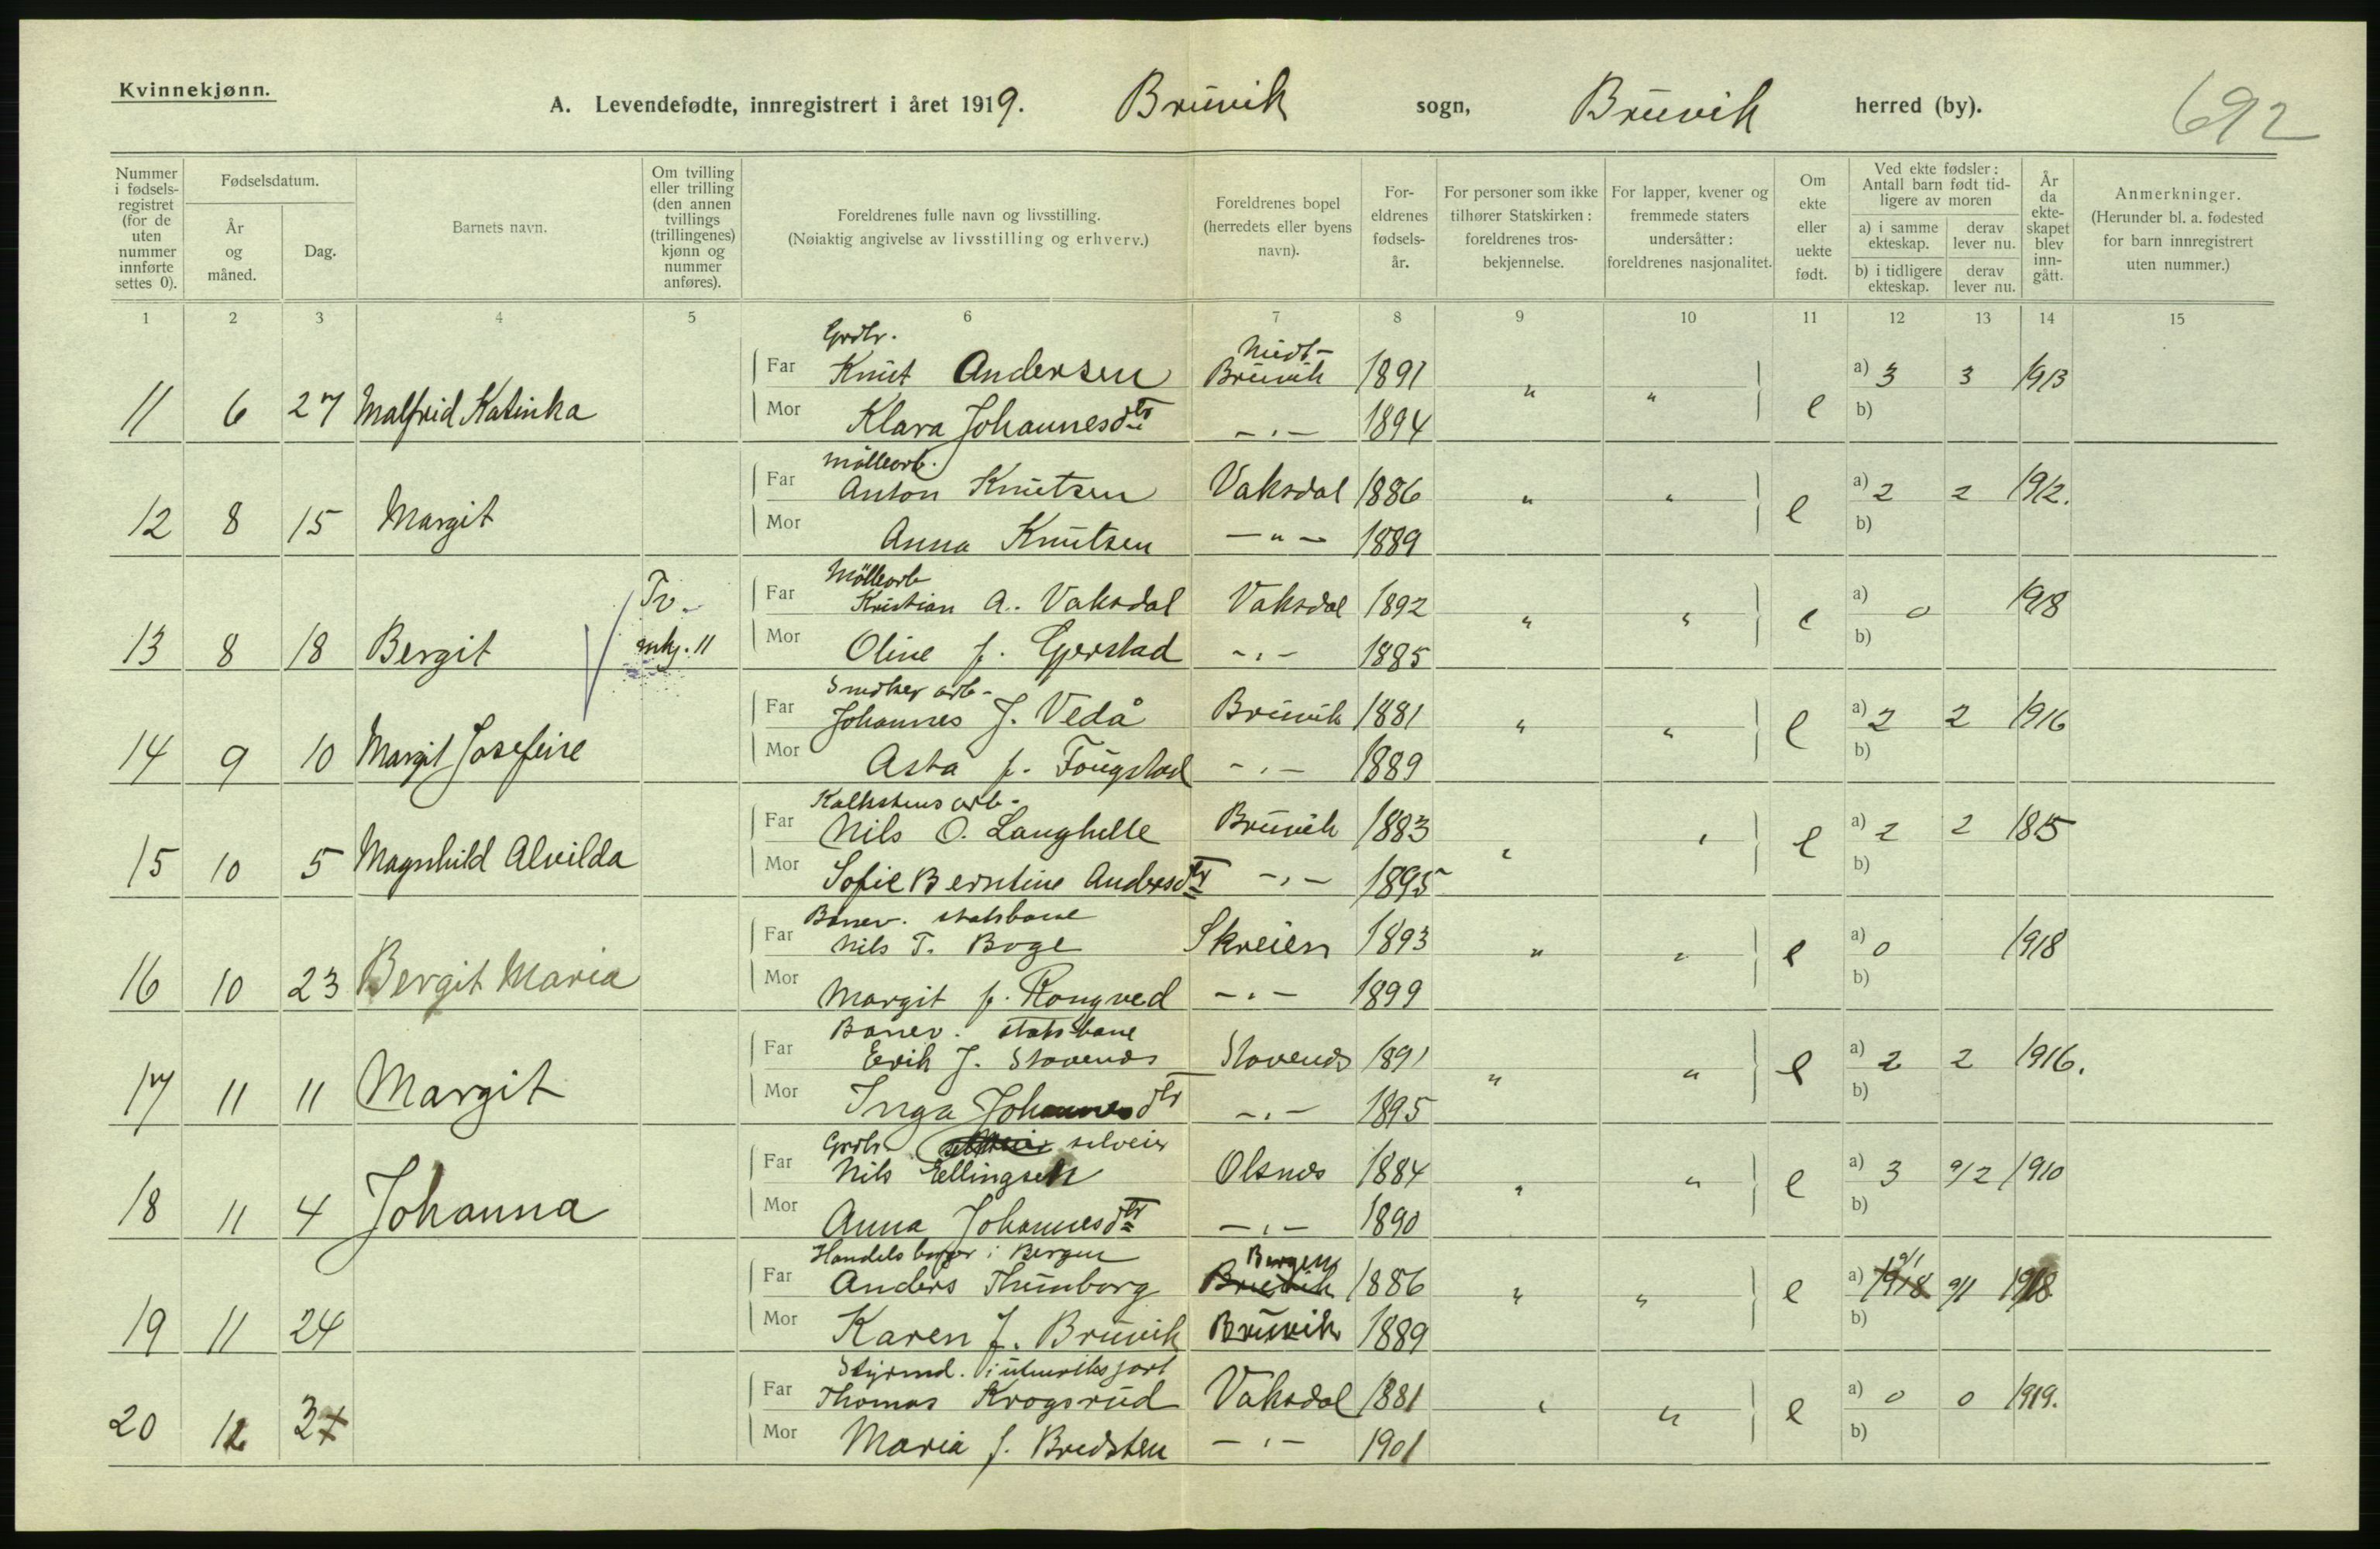 Kvinnekjønn.
A. Levendefødte, innregistrert i året 1919. Bruvik sogn, Bruvik herred (by). 692
Nummer i fødsels-registret (for de uten nummer innførte settes 0).
Fødselsdatum.
År og måned.
Dag.
Barnets navn.
Om tvilling eller trilling (den annen tvillings (trillingenes) kjønn og nummer anføres).
Foreldrenes fulle navn og livsstilling.
(Nøiaktig angivelse av livsstilling og erhverv.)
Foreldrenes bopel (herredets eller byens navn).
For-eldrenes fødsels-år.
For personer som ikke tilhører Statskirken: foreldrenes tros-bekjennelse.
For lapper, kvener og fremmede staters undersåtter: foreldrenes nasjonalitet.
Om ekte eller uekte født.
Ved ekte fødsler: Antall barn født tid-ligere av moren
a) i samme ekteskap.
derav lever nu.
b) i tidligere ekteskap.
derav lever nu.
År da ekte-skapet blev inn-gått.
Anmerkninger.
(Herunder bl. a. fødested for barn innregistrert uten nummer.)
1 2 3 4 5 6 7 8 9 10 11 12 13 14 15
Grdbr. Midt-
Far Knut Andersen Bruvik 1891 a) 3 3 1913
11 6 27 Malfrid Katinka " " e
Mor Klara Johannesdtr -"- 1894 b)
möllearb.
Far Anton Knutsen Vaksdal 1886 a) 2 2 1912.
12 8 15 Margit " " e
Mor Anna Knutsen -"- 1889 b)
Tv. Möllearb
Far Kristian A. Vaksdal Vaksdal 1892 a) 0 1918
13 8 18 Bergit mkj. 11 " " e
Mor Oline f. Gjerstad -"- 1885 b)
arb.
Far Johannes J. Vedå Bruvik 1881 a) 2 2 1916
14 9 10 Margit Josefine " " e
Mor Asta f. Fougstad -"- 1889 b)
Kalkstens arb.
Far Nils O. Langhelle Bruvik 1883 a) 2 2 1815
15 10 5 Magnhild Alvilda " " e
Mor Sofie Berntine Andersdtr -"- 1895 b)
Banev. statsbane
Far Nils T. Boge Skreien 1893 a) 0 1918
16 10 23 Bergit Maria " " e
Mor Margit f. Rongved -"- 1899 b)
Banev. statsbane
Far Erik J. Stavenes Stavenes 1891 a) 2 2 1916.
17 11 11 Margit " " e
Mor Inga Johannesdtr -"- 1895 b)
Grdbr. selveier
Far Nils Ellingsen Olsnes 1884 a) 3 9/2 1910
18 11 4 Johanna " " e
Mor Anna Johannesdtr -"- 1890 b)
Handels borger i Bergen Bergen
Far Anders Thunborg Bruvik 1886 a) 1918 9/1 9/1 1918
19 11 24 " " e
Mor Karen f. Bruvik Bruvik 1889 b)
Styrmd. i utenriksfart
Far Thomas Krogsrud Vaksdal 1881 a) 0 0 1919.
20 12 3 " " e
Mor Maria f. Bredsten -"- 1901 b)